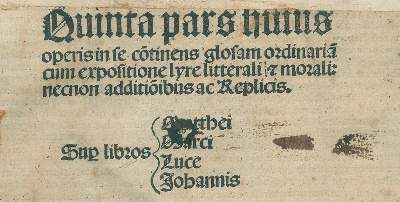 Quinta pars huius
operis in se cõtinens glosam ordinariã
cum expositione lyre litterali ⁊ morali:
necnon additiõibus ac Replicis.
Matthei
Marci
Sup libros
Luce
Johannis